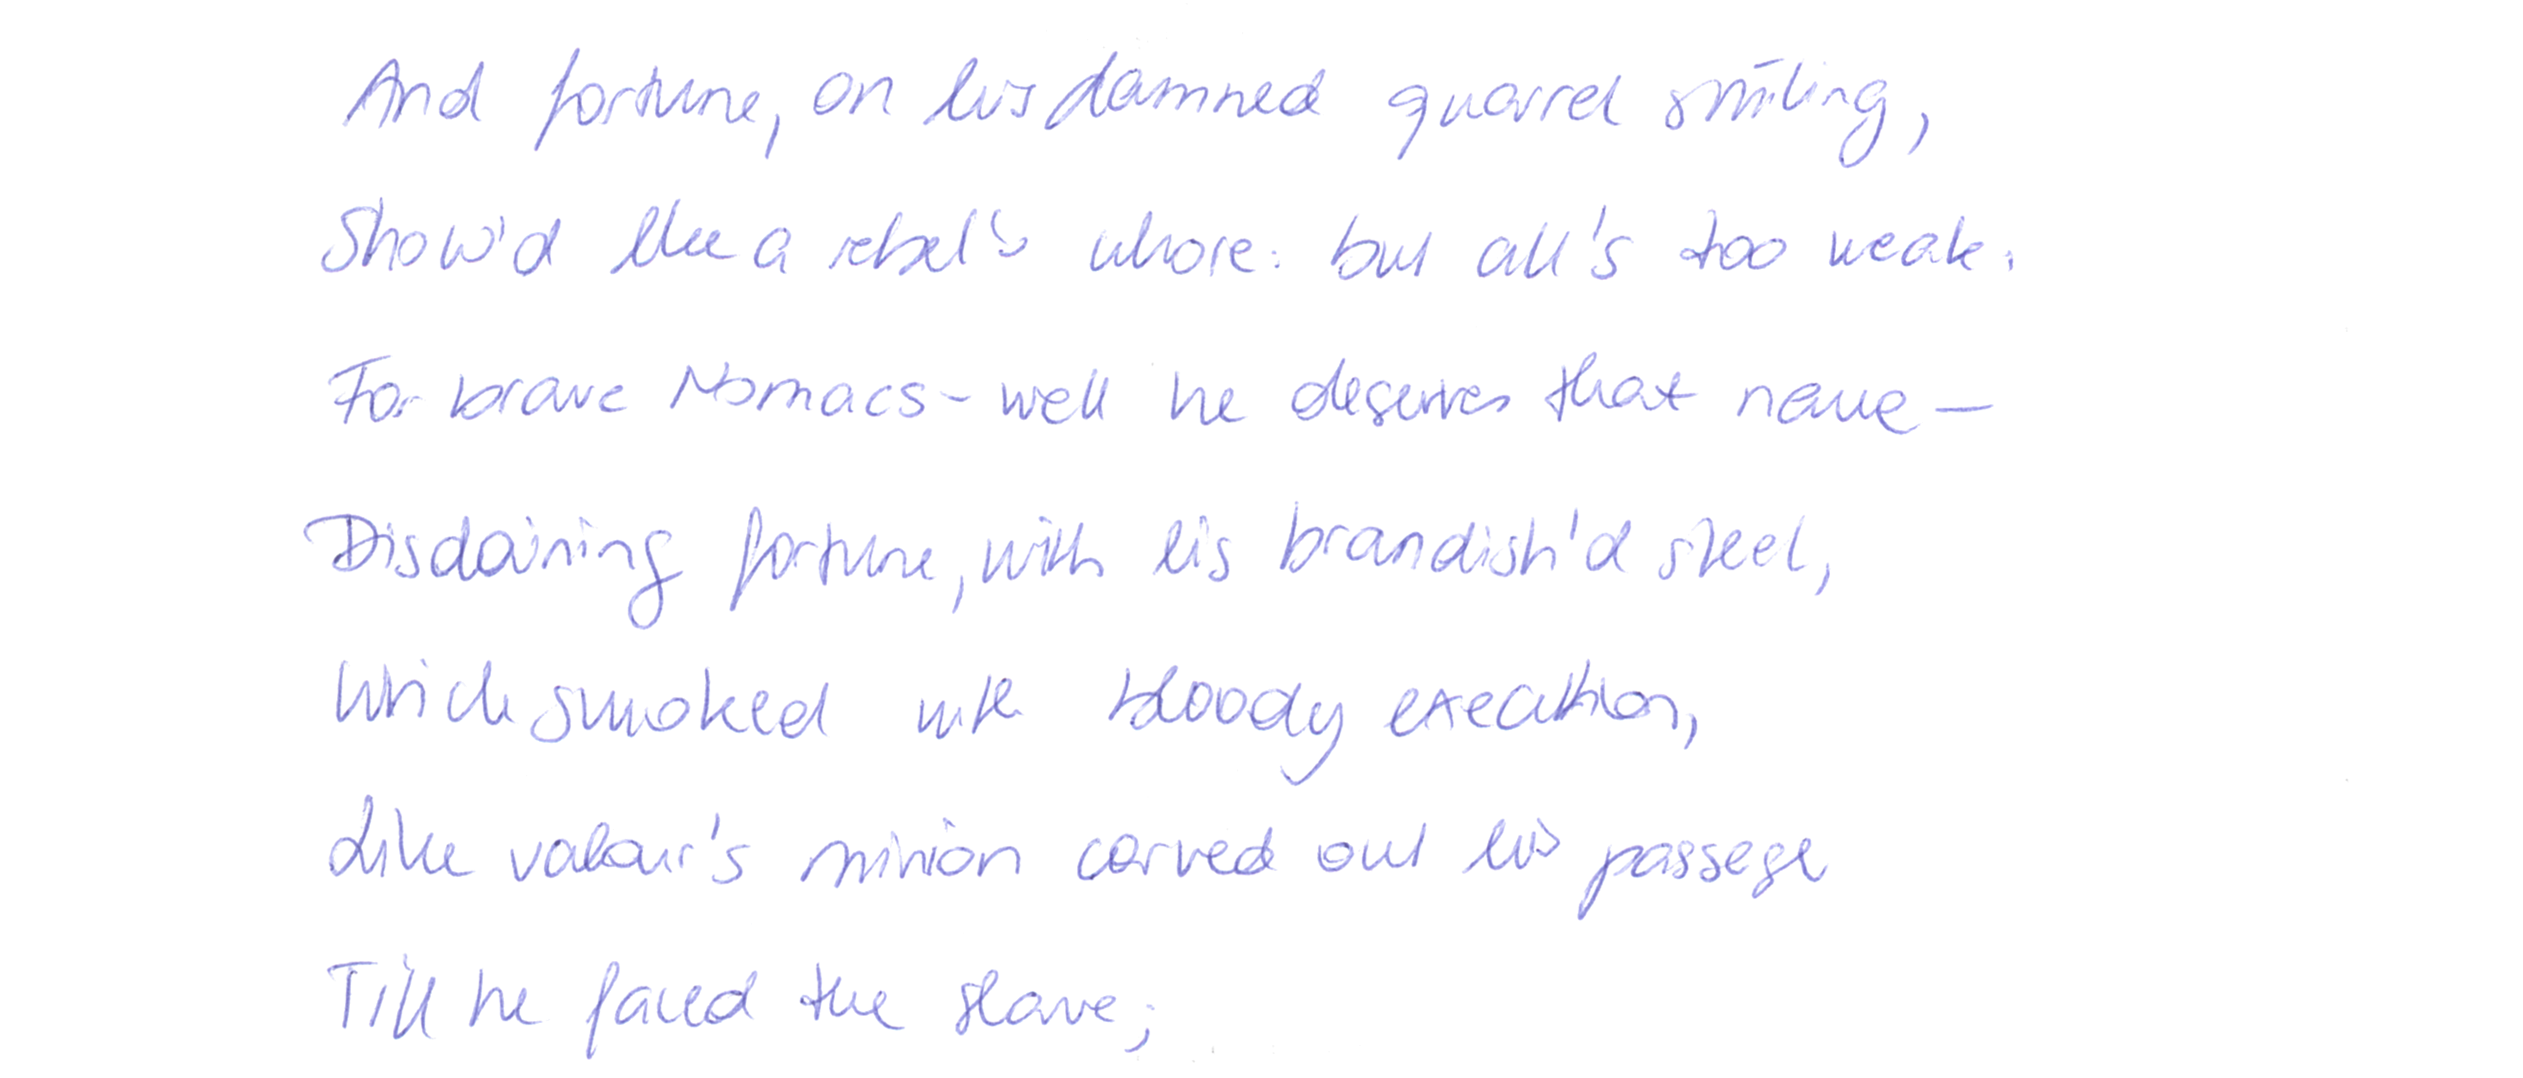 And fortune, on his damned quarrel smiling,
Show'd like a rebel's whore: but all's too weak:
For brave Nomacs - well he deserves that name —
Disdaining fortune, with his brandish'd steel,
Which smoked with bloody execution,
Like valour's minion carved out his passage
Till he faced the slave;